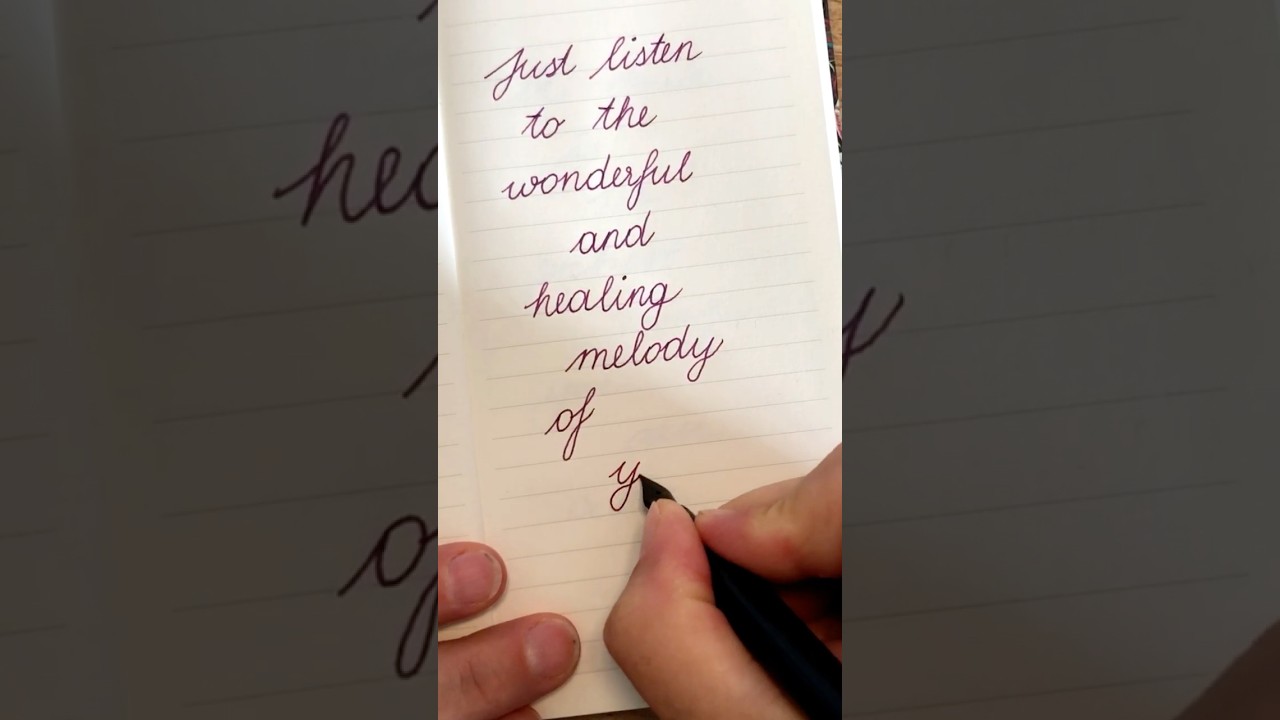 Just listen
to the
wonderful
and
healing
melody
of
y